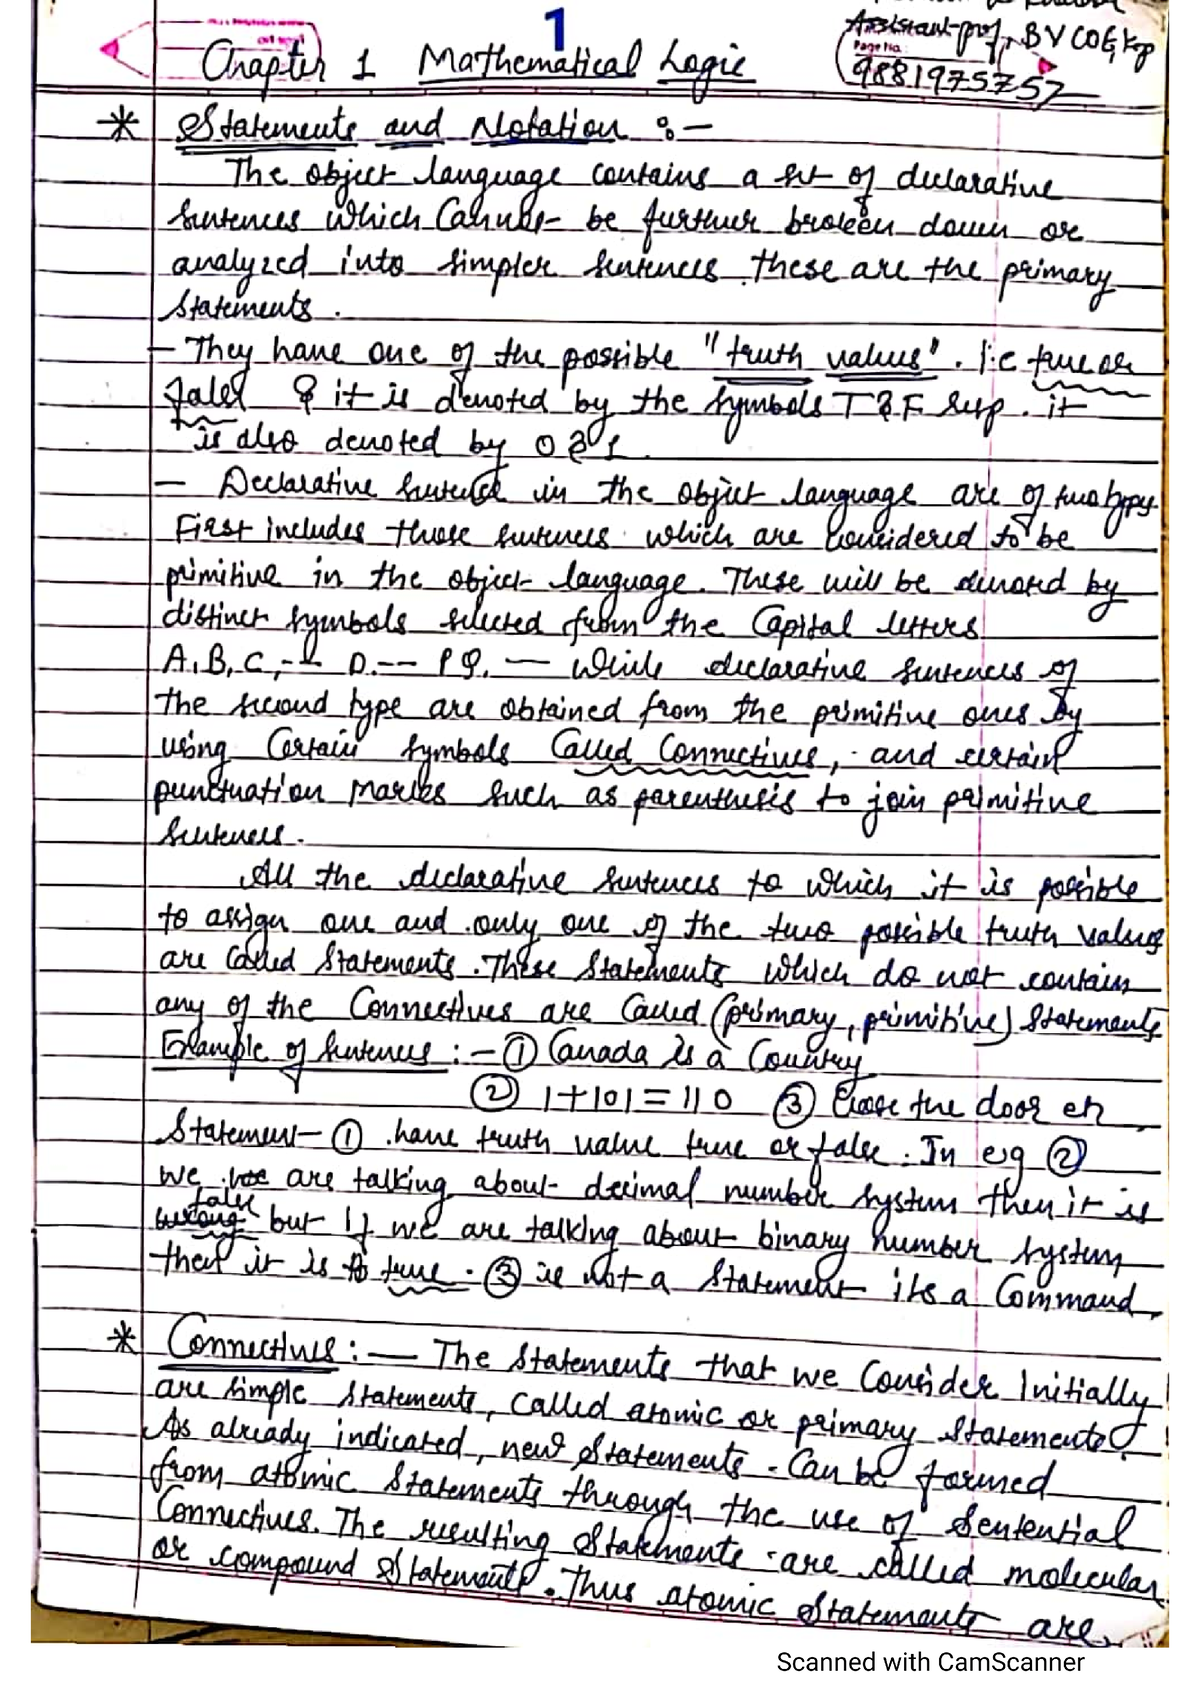 1
Assistant prof, BVCOE, Kop
Page No.
9881975757
Chapter 1 Mathematical Logic
* Statements and Notation :-
The object language contains a set of declarative
sentences which Cannot be further broken down or
analyzed into simpler sentences. these are the primary
statements.
- They have one of the possible "truth values". i.e true or
false & it is denoted by the symbols T & F resp. it
is also denoted by 0 & 1.
- Declarative sentence in the object language are of two types
First includes those sentences which are considered to be
primitive in the object language. These will be denoted by
distinct symbols selected from the Capital letters
A, B, C, -- D. -- P Q. — While declarative sentences of
the second type are obtained from the primitive ones by
using Certain symbols Called Connectives, and certain
punctuation marks such as parenthesis to join primitive
sentences.
All the declarative sentences to which it is possible
to assign one and only one of the two possible truth values
are Called Statements. These Statements which do not contain
any of the Connectives are Called (primary, primitive) Statements
Example of sentences :- ① Canada is a Country
② 1+101=110 ③ Close the door etc
Statement- ① have truth value true or false. In eg ②
we are talking about decimal number system then it is
false
wrong but if we are talking about binary number system
then it is true. ③ is not a Statement its a Command.
* Connectives :— The Statements that we Consider Initially
are simple Statements, called atomic or primary Statements.
As already indicated, new Statements Can be formed
from atomic Statements through the use of Sentential
Connectives. The resulting Statements are called molecular
or compound Statements. Thus atomic Statements are
Scanned with CamScanner